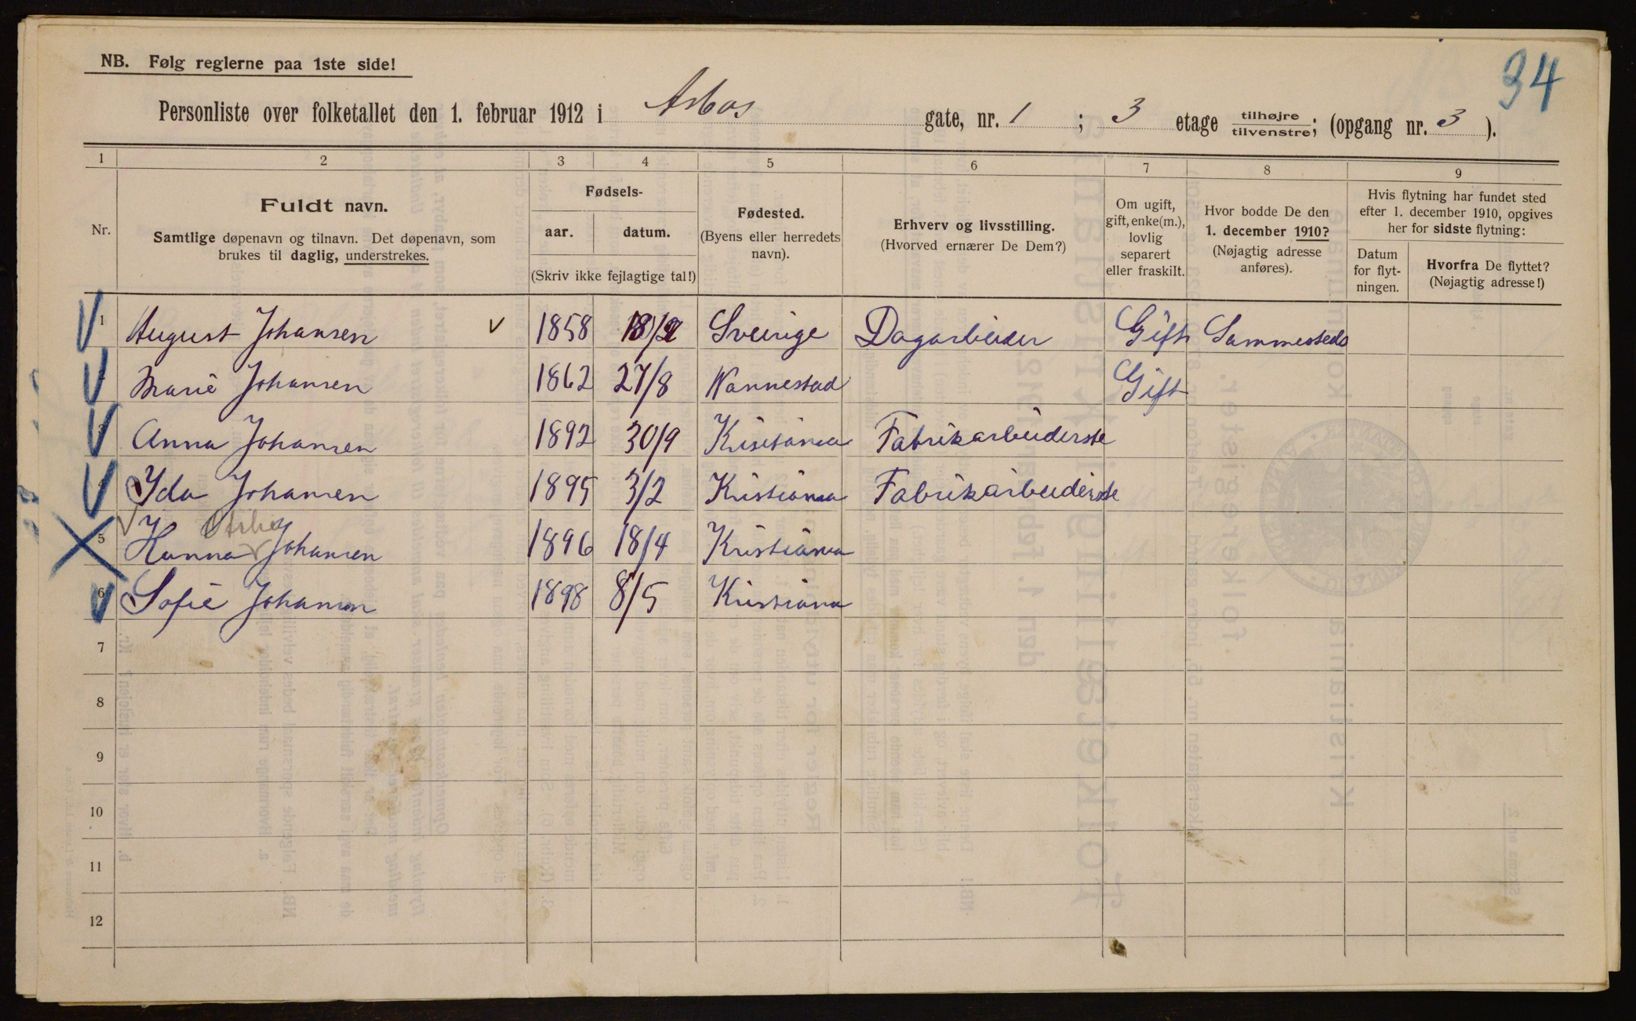 34
NB. Følg reglerne paa 1ste side!
Personliste over folketallet den 1. februar 1912 i Asbos gate, nr. 1 ; 3 etage tilhøjre/tilvenstre; (opgang nr. 3 ).
1 2 3 4 5 6 7 8 9
Nr.
Fuldt navn.
Samtlige døpenavn og tilnavn. Det døpenavn, som
brukes til daglig, understrekes.
Fødsels-
aar. datum.
(Skriv ikke fejlagtige tal!)
Fødested.
(Byens eller herredets
navn).
Erhverv og livsstilling.
(Hvorved ernærer De Dem?)
Om ugift,
gift, enke(m.),
lovlig
separert
eller fraskilt.
Hvor bodde De den
1. december 1910?
(Nøjagtig adresse
anføres).
Hvis flytning har fundet sted
efter 1. december 1910, opgives
her for sidste flytning:
Datum
for flyt-
ningen.
Hvorfra De flyttet?
(Nøjagtig adresse!)
1 August Johansen v 1858 Sveirige Dagarbeider Gift Sammesteds
Marie Johansen 1862 27/8 Nannestad Gift
Anna Johansen 1892 30/9 Kristiania Fabrikarbeiderske
Yda Johansen 1895 3/2 Kristiania Fabrikarbeiderske
5 Hanna Johansen 1896 18/4 Kristiania
6 Sofie Johansen 1898 8/5 Kristiana
7
8
9
10
11
12